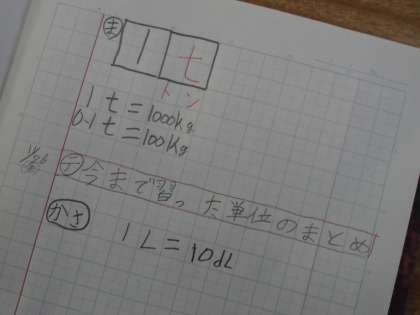 ま 1 t
トン
1 t = 1000kg
0.1 t = 100kg
テ 今まで習った単位のまとめ
かさ
1 L = 10dL